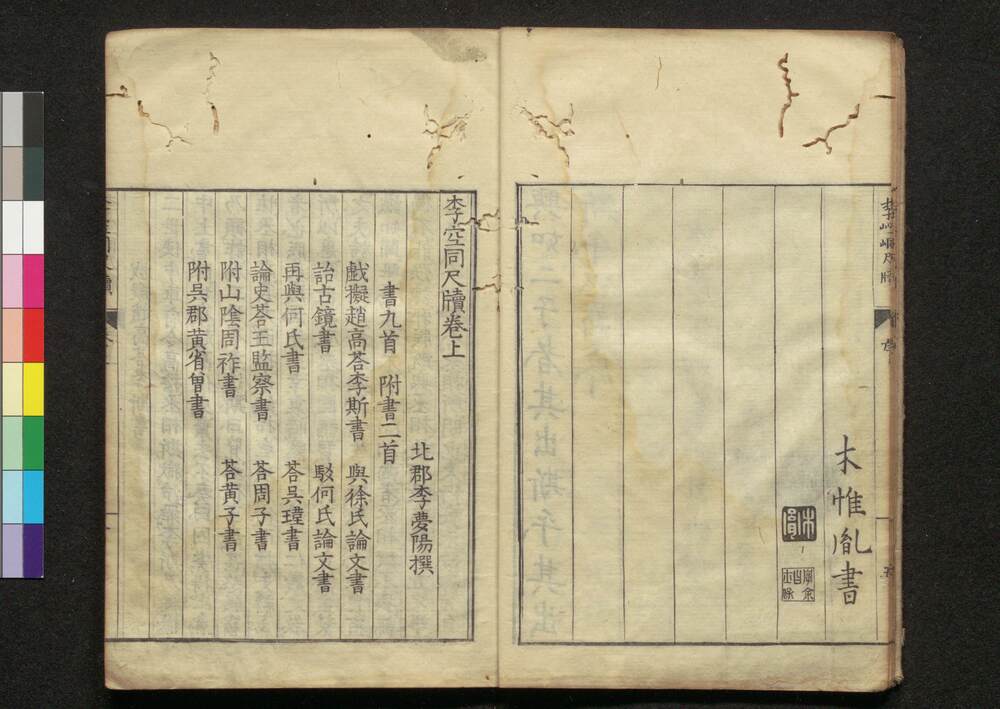 木惟胤書
李空同尺牘卷上
北郡李夢陽撰
書九首 附書二首
戲擬趙高荅李斯書 與徐氏論文書
詒古鏡書 駁何氏論文書
再與何氏書 荅吳瑋書
論史荅王監察書 荅周子書
附山陰周祚書 荅黃子書
附吳郡黃省曾書